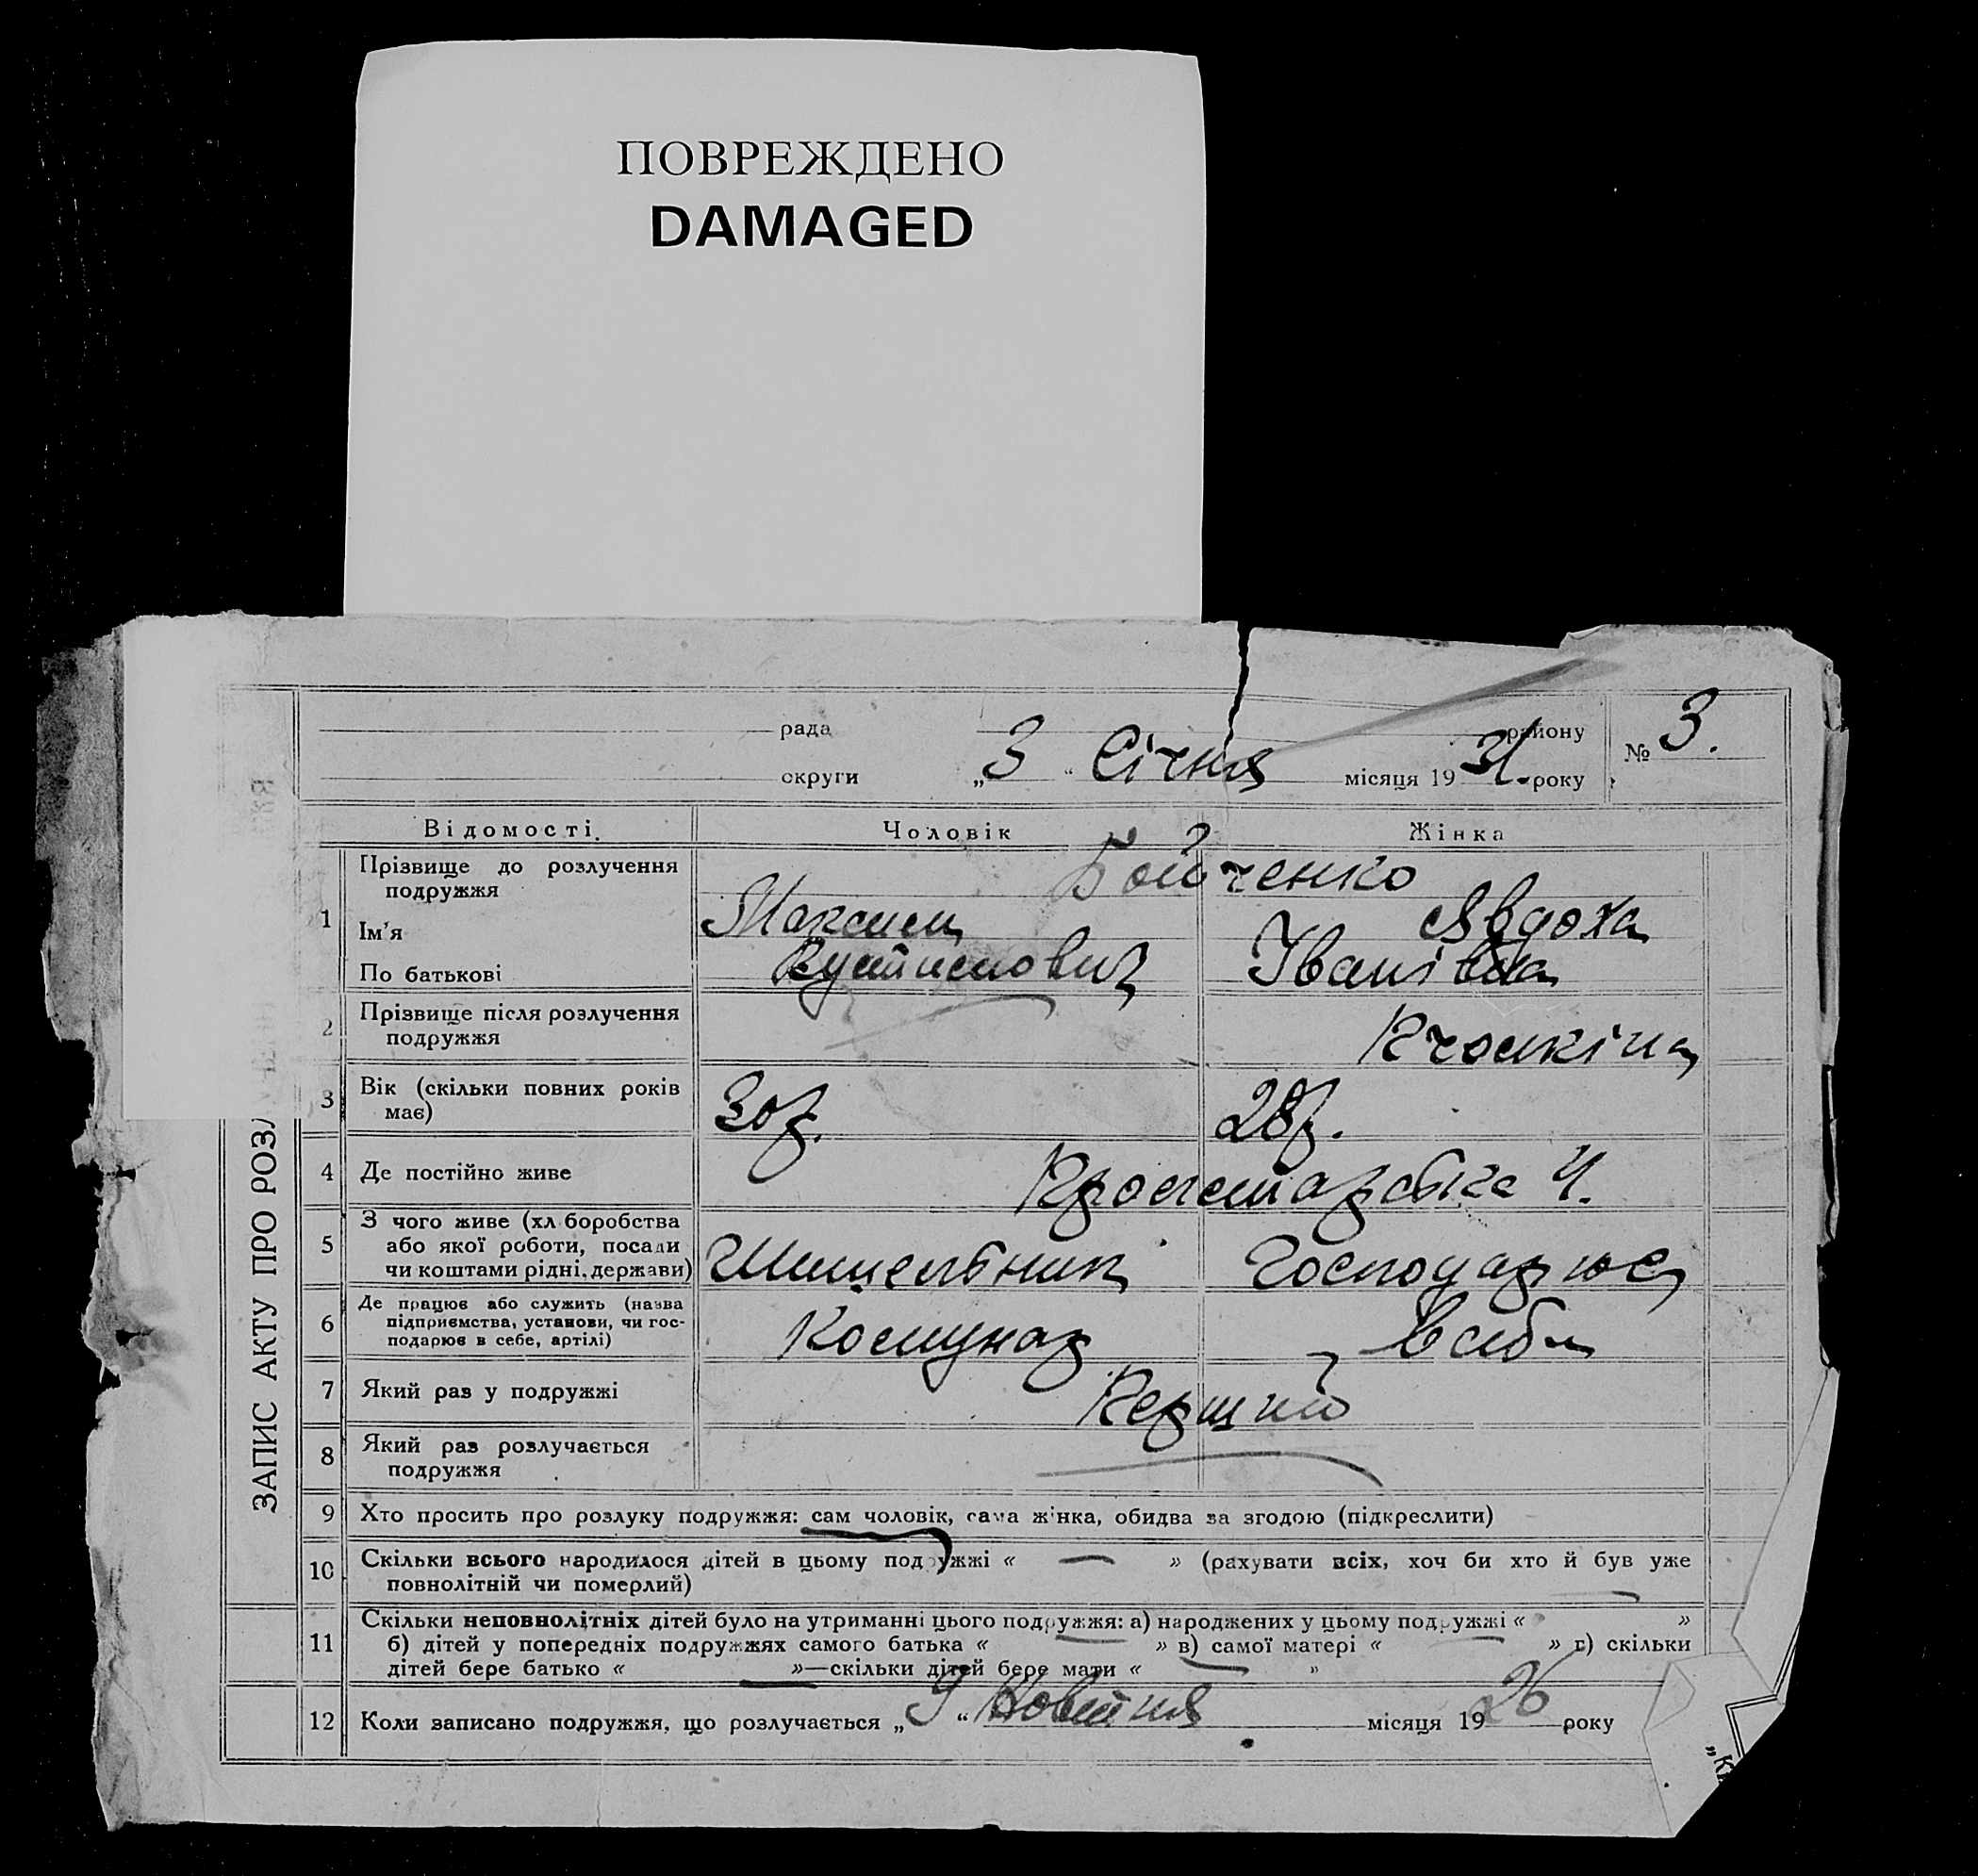 ПОВРЕЖДЕНО
DAMAGED
рада району № 3.
округи „3“ Січня місяця 1931. року
Відомості. Чоловік Жінка
1 Прізвище до розлучення подружжя Бойченко
Ім'я Максим Явдоха
По батькові Устимович Іванівна
2 Прізвище після розлучення
подружжя
3 Вік (скільки повних років 30р. 28р.
має)
4 Де постійно живе
5 З чого живе (хл боробства
або якої роботи, посади
чи коштами рідні, держави) Господарює
6 Де працює або служить (назва
підприємства, установи, чи гос-
подарює в себе, артілі) Комунар
7 Який раз у подружжі Перший
8 Який раз розлучається
подружжя
9 Хто просить про розлуку подружжя: сам чоловік, сама жінка, обидва за згодою (підкреслити)
10 Скільки всього народилося дітей в цьому подружжі « — » (рахувати всіх, хоч би хто й був уже
повнолітній чи померлий)
11 Скільки неповнолітніх дітей було на утриманні цього подружжя: а) народжених у цьому подружжі « »
б) дітей у попередніх подружжях самого батька « » в) самої матері « » г) скільки
дітей бере батько « »—скільки дітей бере мати « »
12 Коли записано подружжя, що розлучається „9“ Жовтня місяця 1926 року
ЗАПИС АКТУ ПРО РОЗЛ